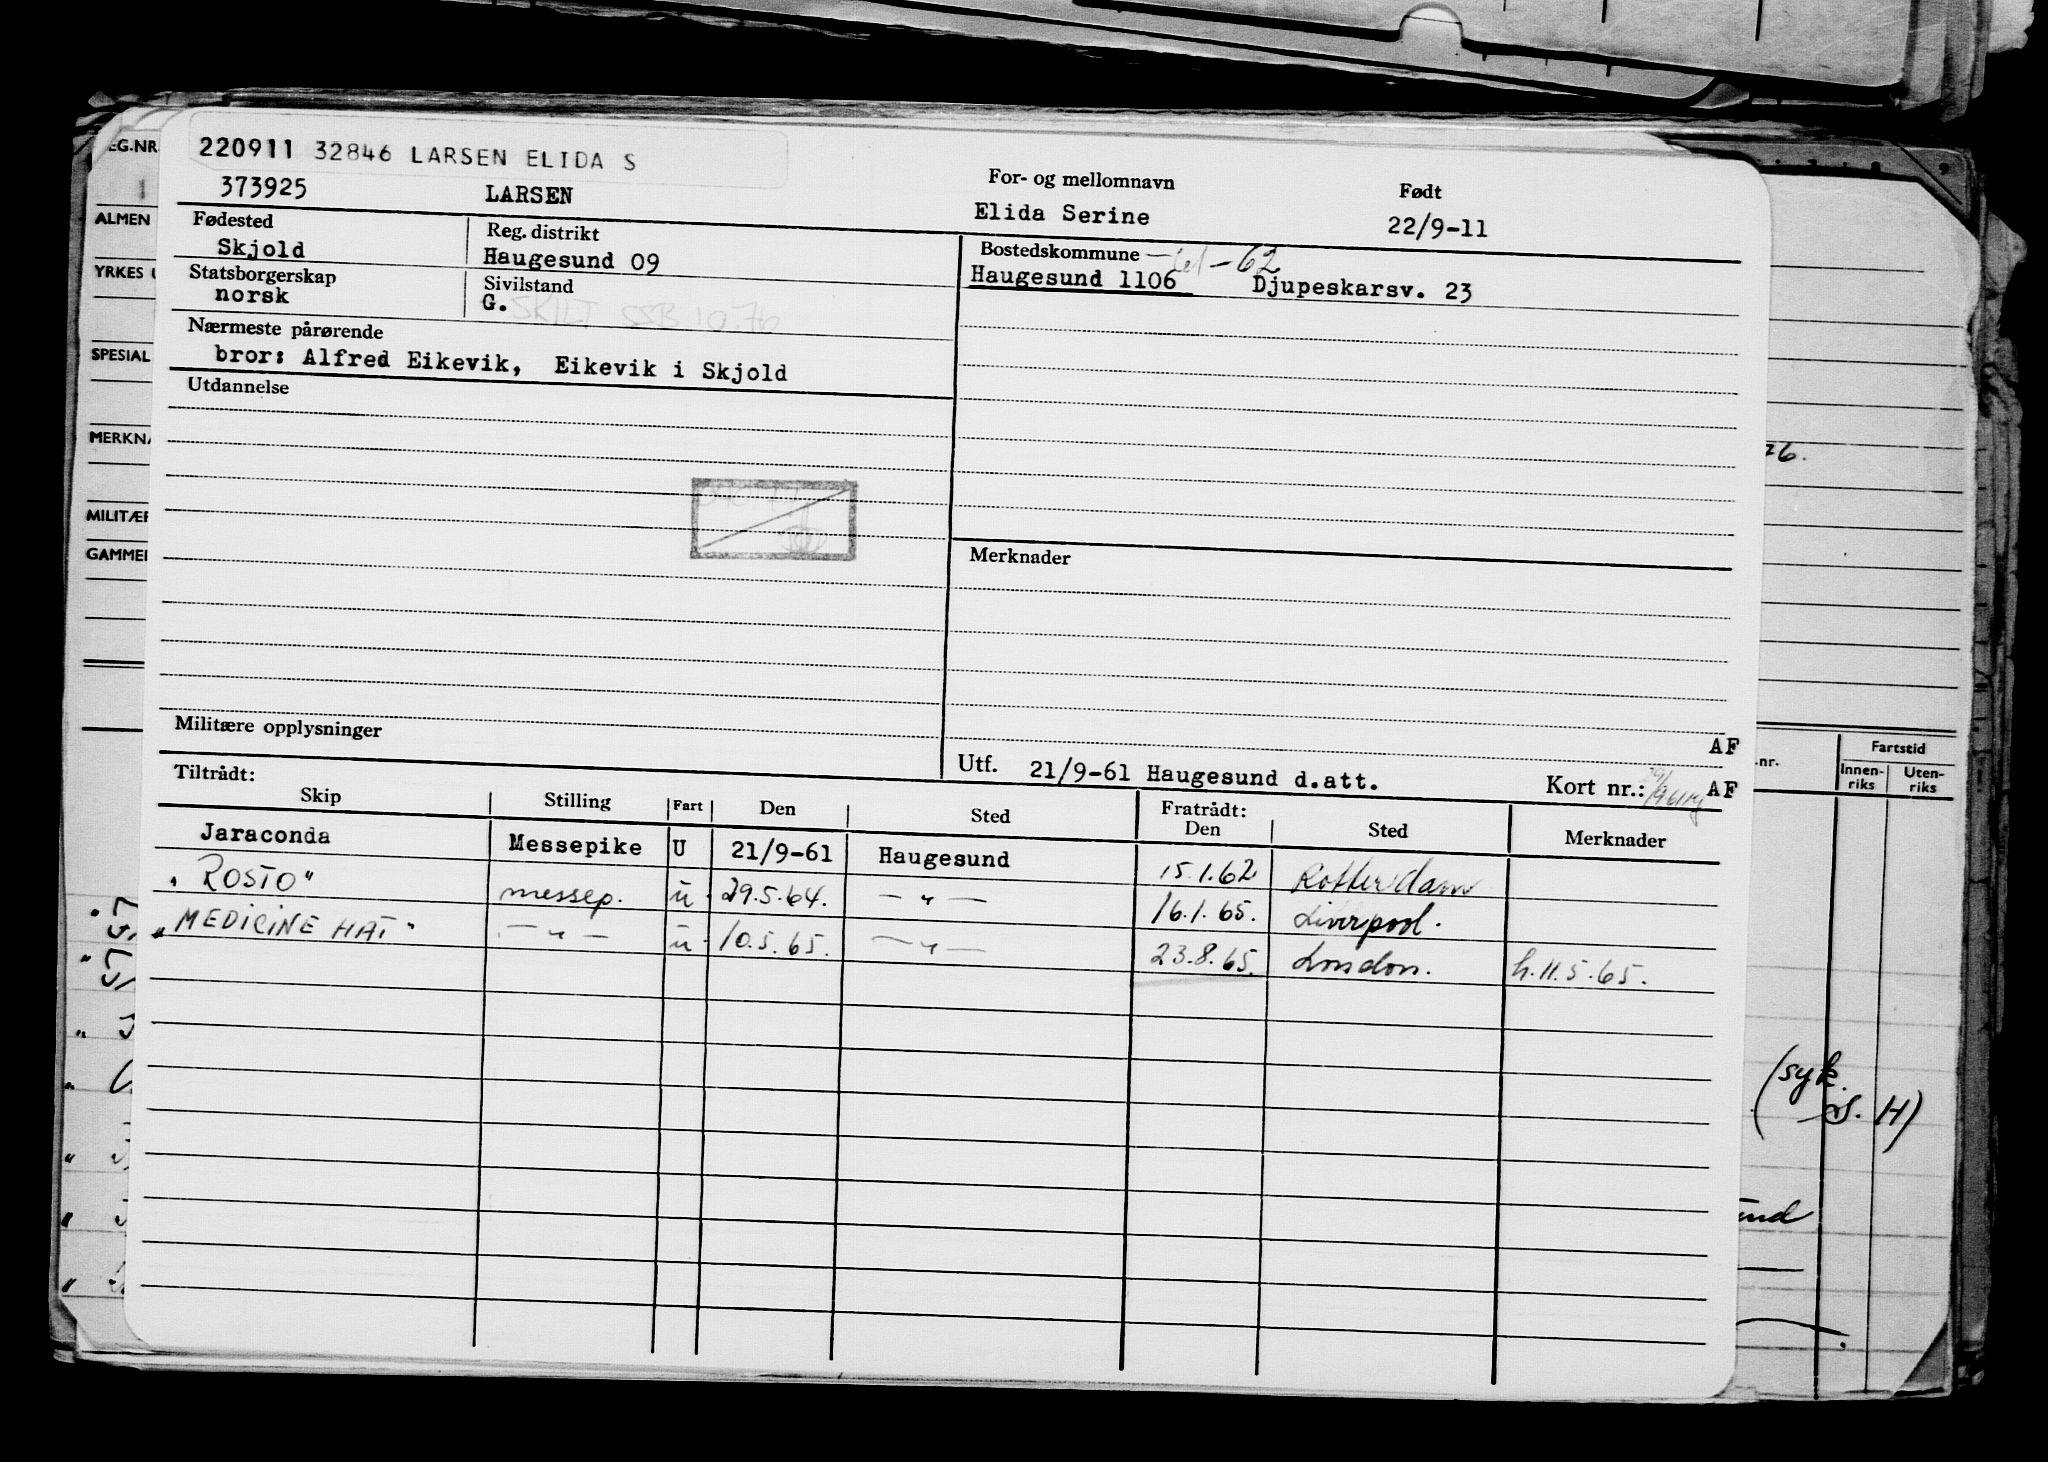 220911 32846 LARSEN ELIDA S
373925 LARSEN
For- og mellomnavn
Elida Serine
Født
22/9-11
Fødested
Skjold
Reg. distrikt
Haugesund 09
Bostedskommune -62
Haugesund 1106 Djupeskarsv. 23
Statsborgerskap
norsk
Sivilstand
G. SKILT SSB 10.76
Nærmeste pårørende
bror: Alfred Eikevik, Eikevik i Skjold
Utdannelse
Merknader
Militære opplysninger
AF
Utf. 21/9-61 Haugesund d.att. Kort nr.: AF
Tiltrådt: Fratrådt:
Skip Stilling Fart Den Sted Den Sted Merknader
Jaraconda Messepike U 21/9-61 Haugesund 15.1.62 Rotterdam
"ROSTO" messep. u 29.5.64. — " — 16.1.65. Liverpool.
"MEDICINE HAT" — " — u 10.5.65. — " — 23.8.65. London. h.11.5.65.
EG.NR.
ALMEN
YRKES U
SPESIAL
MERKNA
MILITÆR
GAMMEL
76.
.nr.
Fartstid
Innen-
riks
Uten-
riks
(syk.
S. H)
und